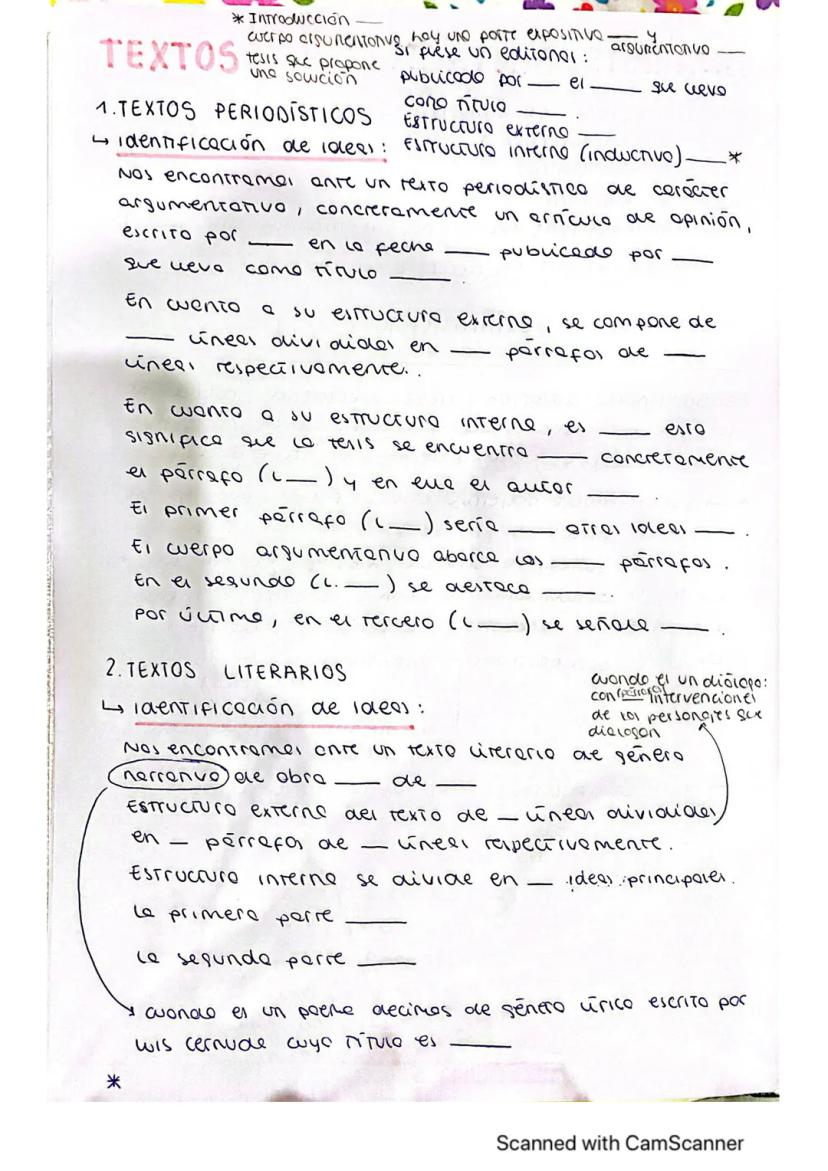 * Introducción ___
cuerpo argumentativo hay una parte expositiva ___ y
argumentativo ___
tesis que propone
una solución
TEXTOS
Si fuese un editorial:
publicado por ___ el ___ que lleva
como título ___.
Estructura externa ___
Estructura interna (inductiva) ___*
1. TEXTOS PERIODÍSTICOS
↳ identificación de ideas:
Nos encontramos ante un texto periodístico de carácter
argumentativo, concretamente un artículo de opinión,
escrito por ___ en la fecha ___ publicado por ___
que lleva como título ___.
En cuanto a su estructura externa, se compone de
___ líneas divididas en ___ párrafos de ___
líneas respectivamente.
En cuanto a su estructura interna, es ___ esto
significa que la tesis se encuentra ___ concretamente
el párrafo (L___) y en ella el autor ___.
El primer párrafo (L___) sería ___ otras ideas ___.
El cuerpo argumentativo abarca los ___ párrafos.
En el segundo (L.___) se destaca ___.
Por último, en el tercero (L___) se señala ___.
2. TEXTOS LITERARIOS
↳ identificación de ideas:
cuando es un diálogo:
con intervenciones
de los personajes que
dialogan
Nos encontramos ante un texto literario de género
narrativo de obra ___ de ___
Estructura externa del texto de _ líneas divididas
en _ párrafos de _ líneas respectivamente.
Estructura interna se divide en _ ideas principales.
La primera parte ___
La segunda parte ___
cuando es un poema decimos de género lírico escrito por
Luis Cernuda cuyo título es ___
*
Scanned with CamScanner